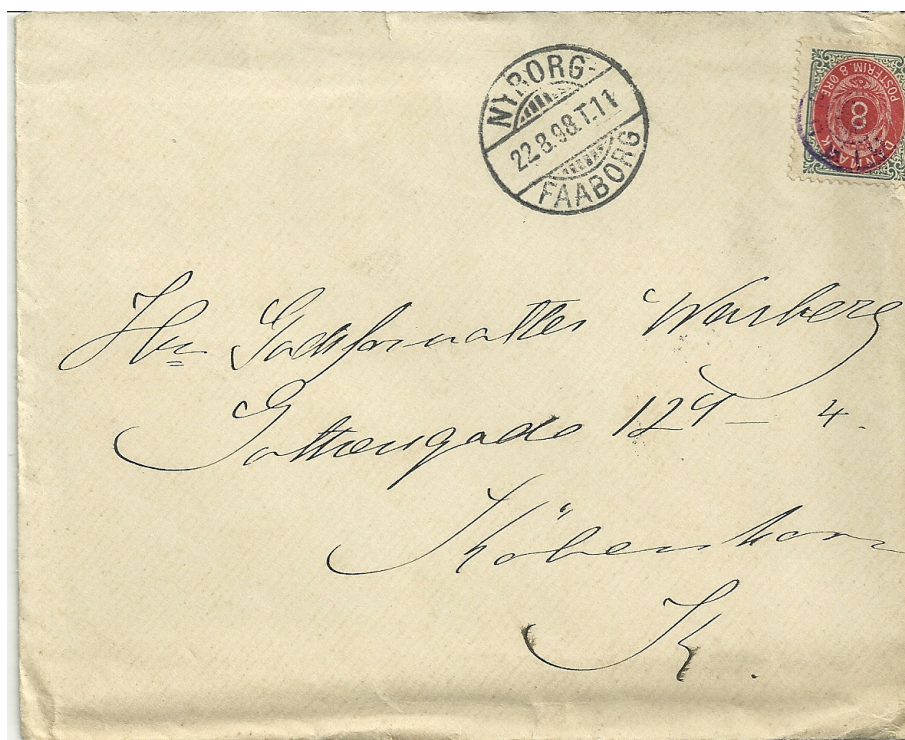 NYBORG-
22.8.98.T.11
FAABORG
POSTFRIM. 8 ØRE
8
DANMARK
Hr Godsforvalter Warberg
Gothersgade 129 – 4.
Köbenhavn
K.